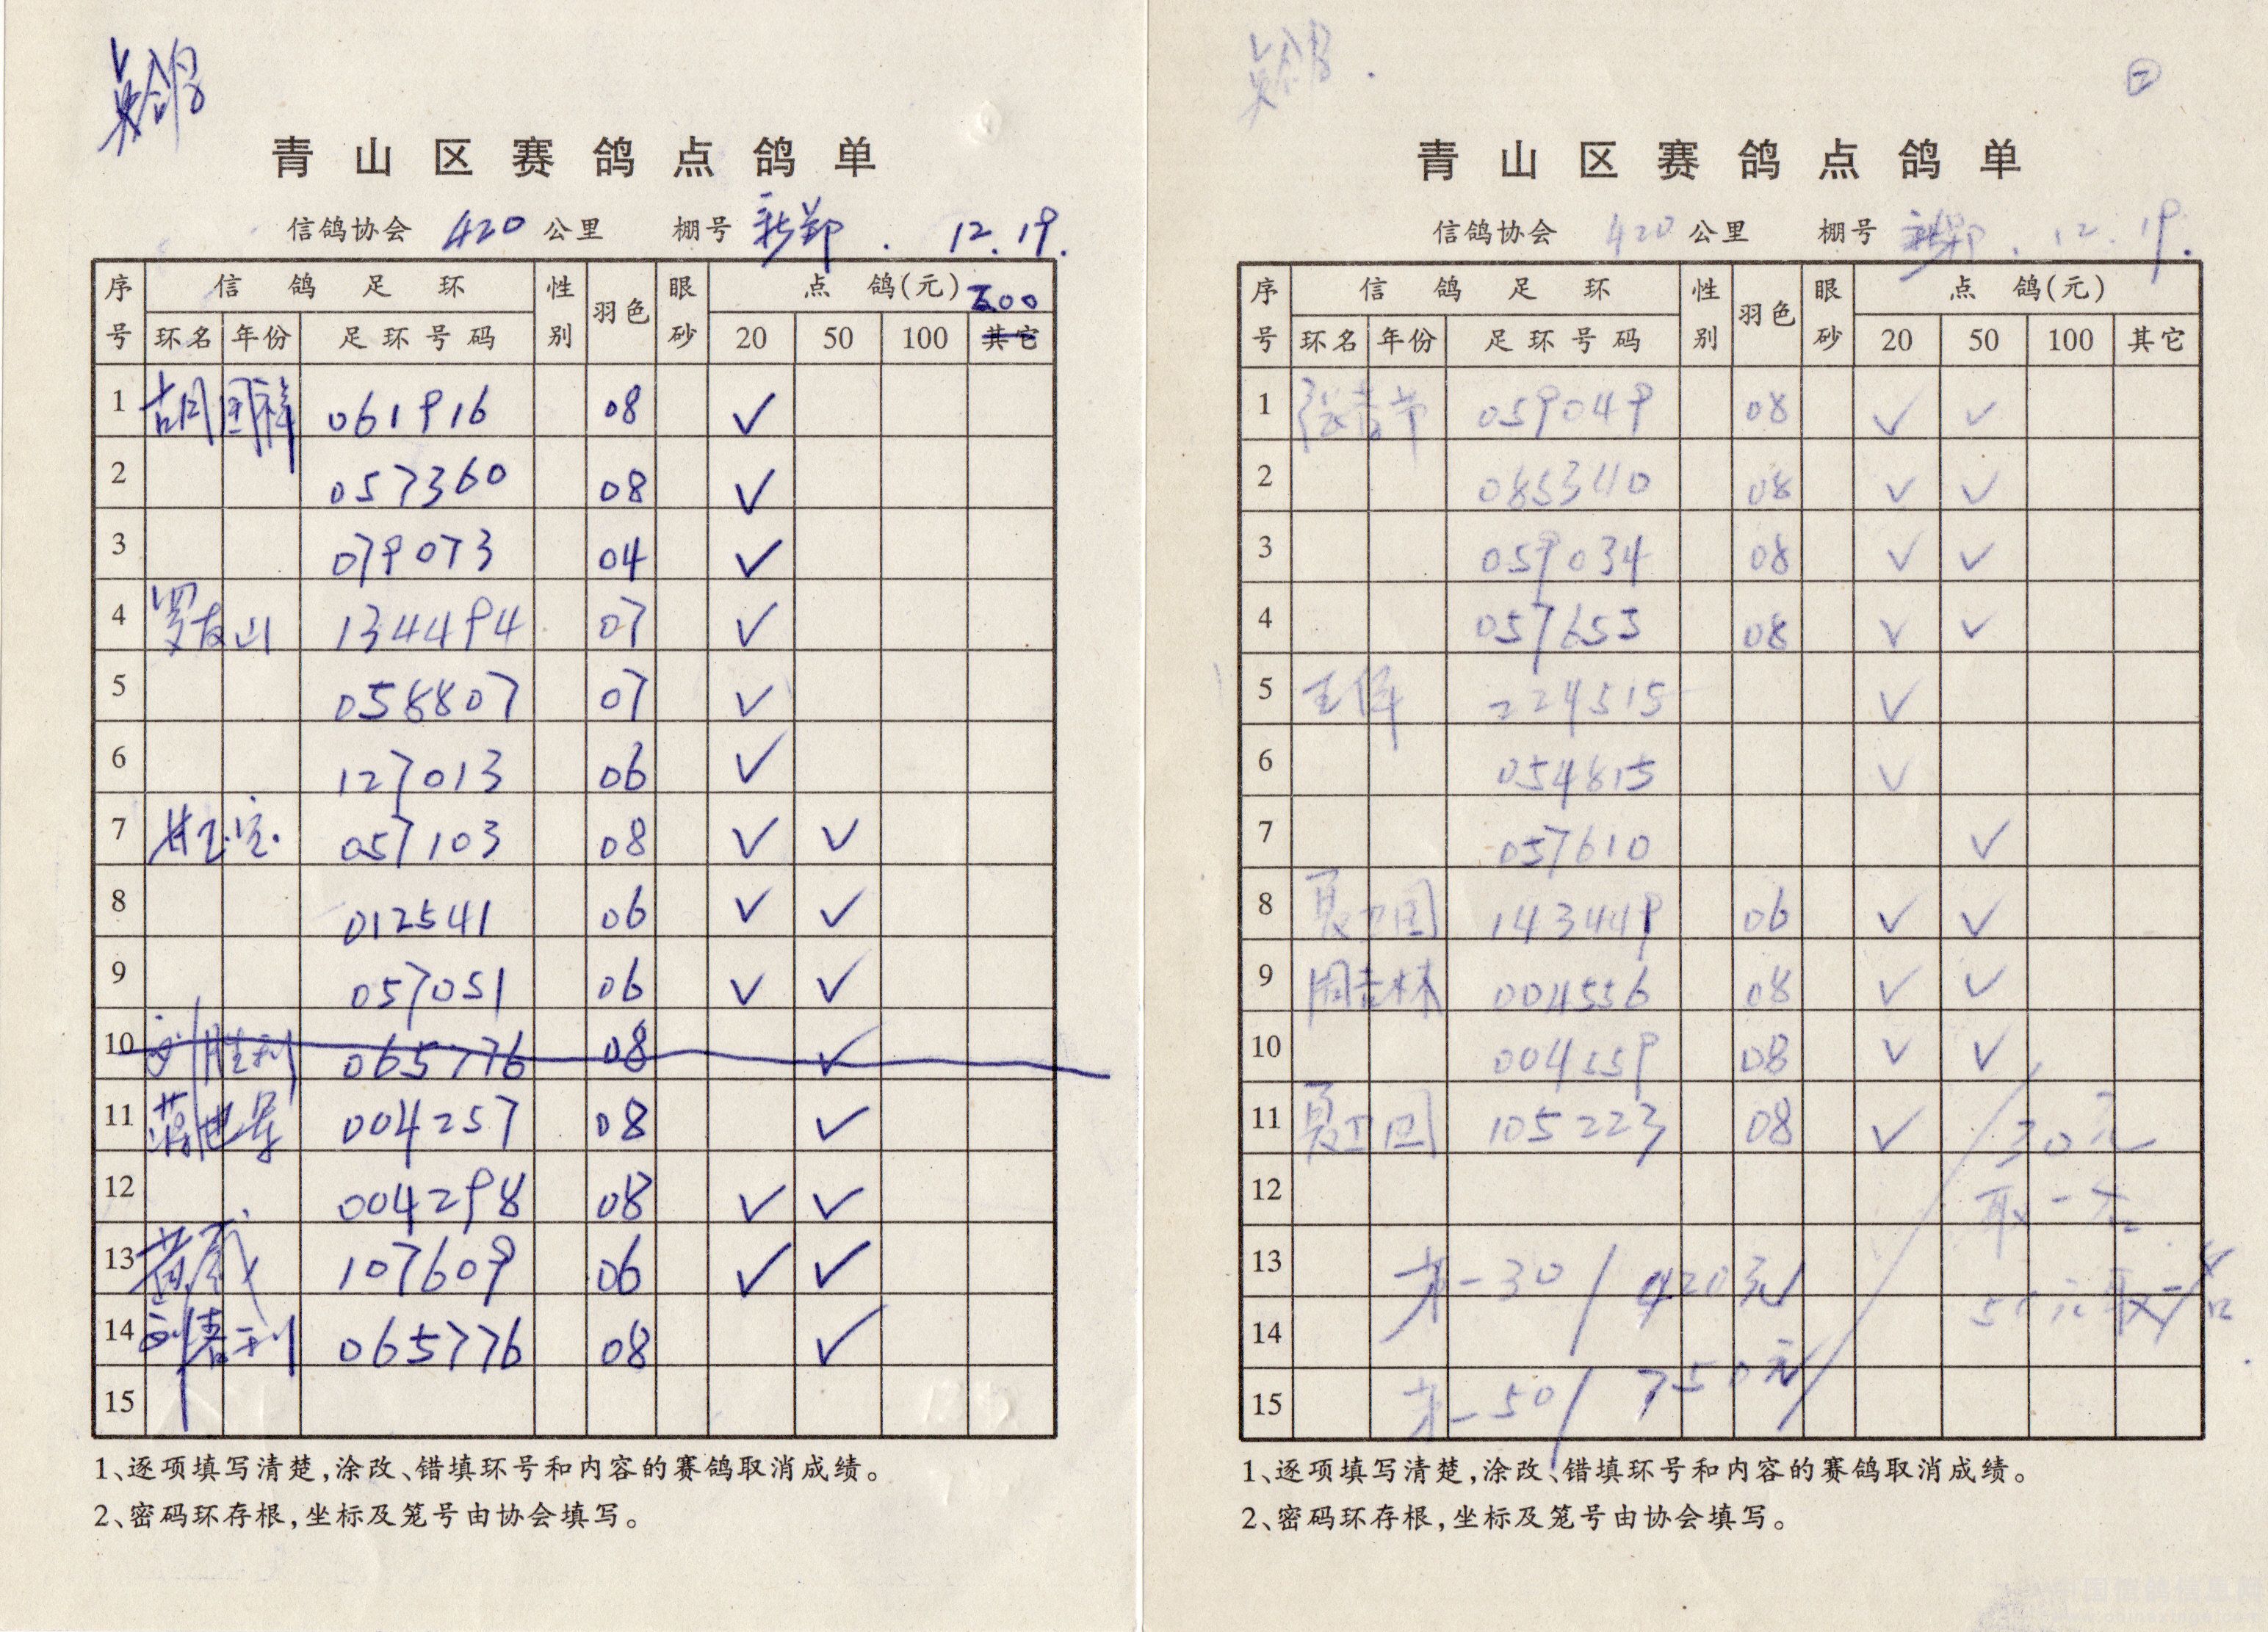 青山区赛鸽点鸽单
信鸽协会 420 公里 棚号 新郑 . 12.19.
序号 信鸽足环 性别 羽色 眼砂 点鸽(元)
环名 年份 足环号码 20 50 100 其它
1 胡国祥 061916 08 ✓
2 057360 08 ✓
3 079073 04 ✓
4 罗友山 134494 07 ✓
5 058807 07 ✓
6 127013 06 ✓
7 057103 08 ✓ ✓
8 012541 06 ✓ ✓
9 057051 06 ✓ ✓
10 刘胜利 065776 08 ✓
11 004257 08 ✓
12 004298 08 ✓ ✓
13 107609 06 ✓ ✓
14 065776 08 ✓
15
1、逐项填写清楚,涂改、错填环号和内容的赛鸽取消成绩。
2、密码环存根,坐标及笼号由协会填写。
㊁
青山区赛鸽点鸽单
信鸽协会 420 公里 棚号 新郑 . 12.19.
序号 信鸽足环 性别 羽色 眼砂 点鸽(元)
环名 年份 足环号码 20 50 100 其它
1 059049 08 ✓ ✓
2 085340 08 ✓ ✓
3 059034 08 ✓ ✓
4 057653 08 ✓ ✓
5 王伟 224515 ✓
6 054815 ✓
7 057610 ✓
8 夏卫国 143449 06 ✓ ✓
9 周吉林 004556 08 ✓ ✓
10 004559 08 ✓ ✓
11 夏卫国 105223 08 ✓ 30元
12 取一名
13 30 / 420元
14 50元取一名
15 50 / 750元
1、逐项填写清楚,涂改、错填环号和内容的赛鸽取消成绩。
2、密码环存根,坐标及笼号由协会填写。